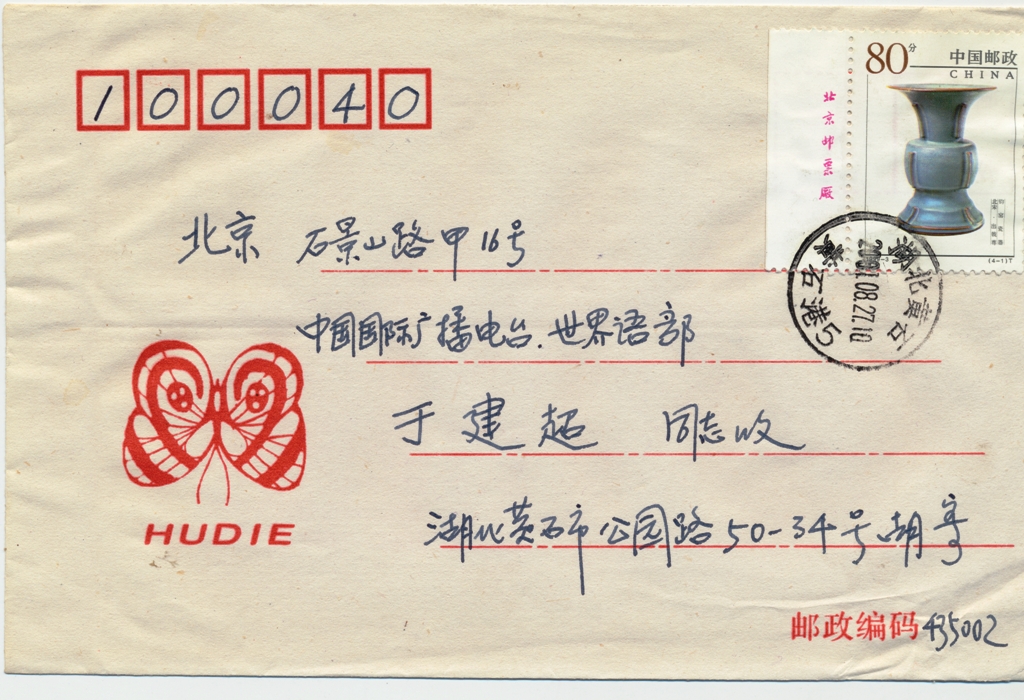 100040
80分
中国邮政
CHINA
北京邮票厂
(4-1)T
湖北黄石
2001.08.27.10
黄石港
北京 石景山路甲16号
中国国际广播电台.世界语部
于建超 同志收
HUDIE
湖北黄石市公园路50-34号胡寄
邮政编码 435002